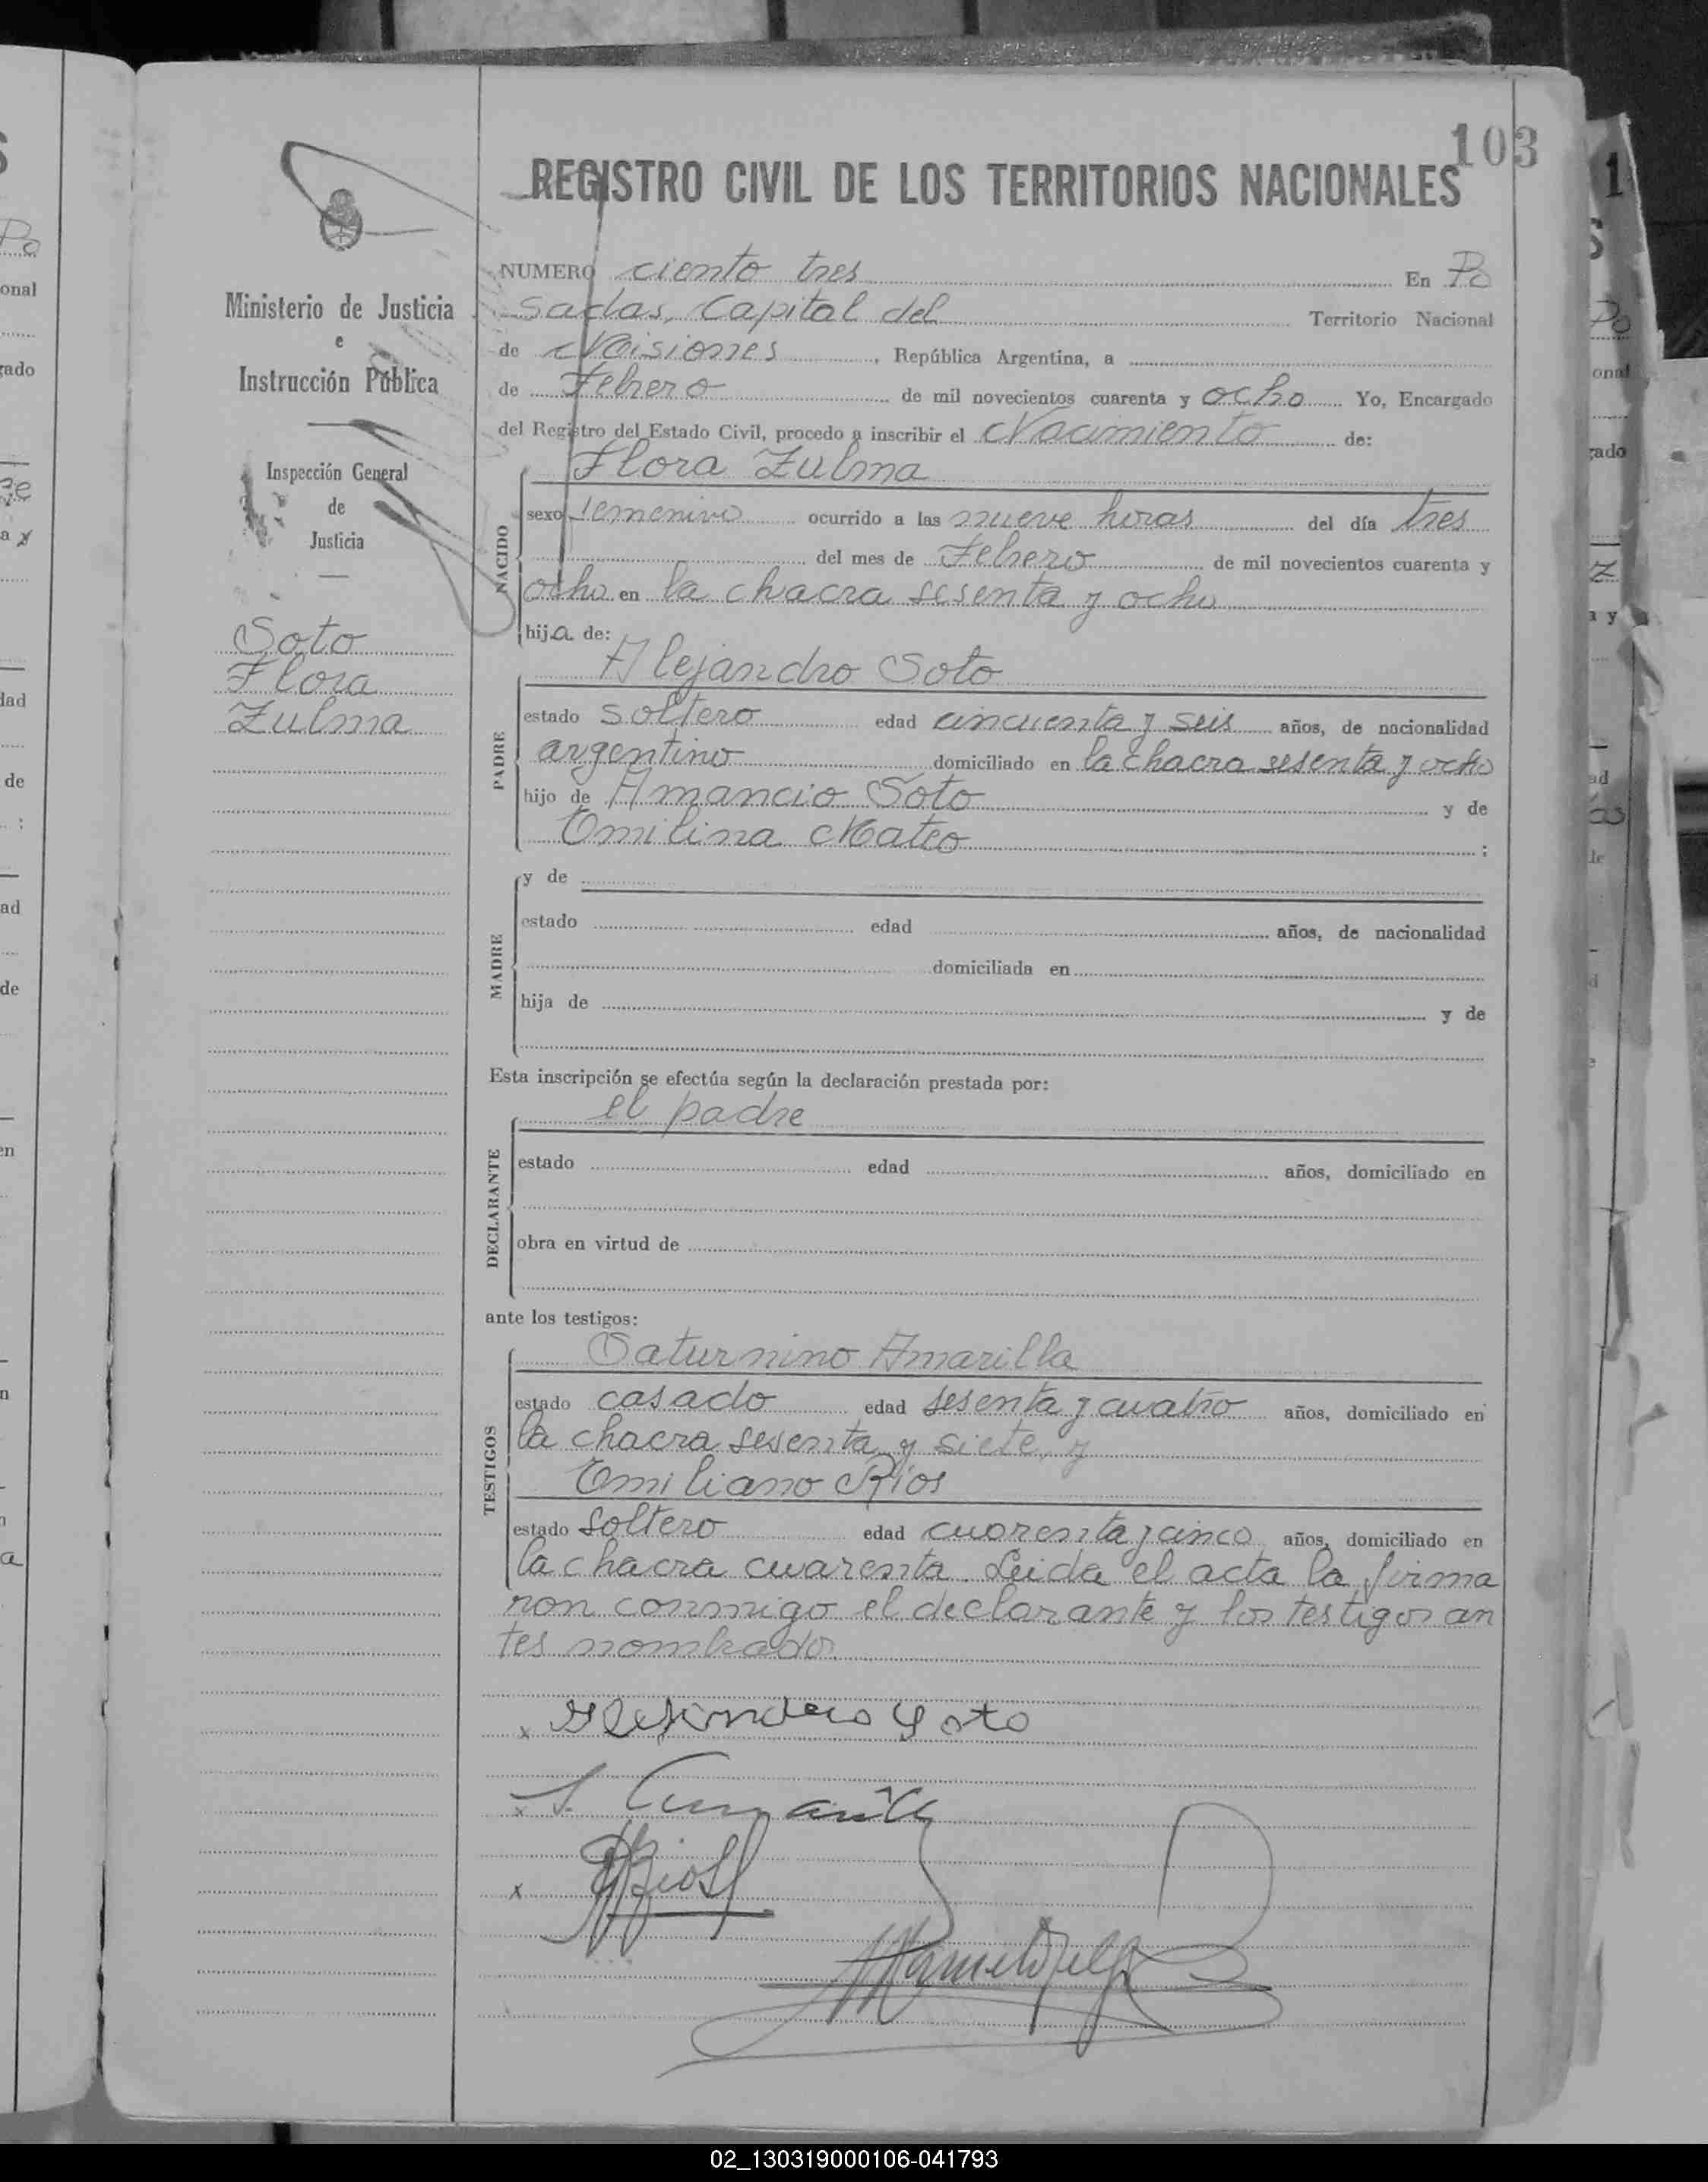 103
REGISTRO CIVIL DE LOS TERRITORIOS NACIONALES
NUMERO ciento tres En Po
sadas, Capital del Territorio Nacional
de Misiones, República Argentina, a
de Febrero de mil novecientos cuarenta y ocho Yo, Encargado
del Registro del Estado Civil, procedo a inscribir el Nacimiento de:
Flora Zulma
NACIDO
sexo femenino ocurrido a las nueve horas del día tres
del mes de Febrero de mil novecientos cuarenta y
ocho en la chacra sesenta y ocho
hija de:
Alejandro Soto
PADRE
estado soltero edad cincuenta y seis años, de nacionalidad
argentino domiciliado en la chacra sesenta y ocho
hijo de Amancio Soto y de
Emilina Mateo ;
MADRE
y de
estado edad años, de nacionalidad
domiciliada en
hija de y de
Esta inscripción se efectúa según la declaración prestada por:
el padre
DECLARANTE
estado edad años, domiciliado en
obra en virtud de
ante los testigos:
Saturnino Amarilla
TESTIGOS
estado casado edad sesenta y cuatro años, domiciliado en
la chacra sesenta y siete, y
Emiliano Ríos
estado soltero edad cuarenta y cinco años, domiciliado en
la chacra cuarenta. Leida el acta la firma
ron conmigo el declarante y los testigos an
tes nombrados
x Alejandro Soto
x S. Amarilla
x
Ministerio de Justicia
e
Instrucción Pública
Inspección General
de
Justicia
Soto
Flora
Zulma
02_130319000106-041793